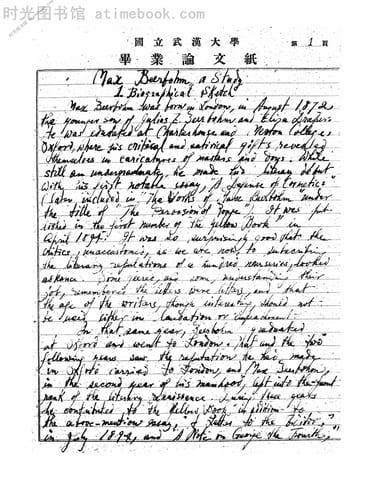 时光图书馆 atimebook.com
國立武漢大學 第 1 頁
畢業論文紙
Max Beerbohm, a Study
1. Biographical Sketch
Max Beerbohm was born in London, in August 1872
the younger son of Julius E. Beerbohm and Eliza Draper.
He was educated at Charterhouse and Merton College,
Oxford, where his critical and satirical gifts revealed
themselves in caricatures of masters and boys. While
still an undergraduate, he made his literary debut
with his first notable essay, "A Defense of Cosmetics"
(later included in "The Works of Max Beerbohm" under
the title of "The Pervasion of Rouge"). It was pub-
lished in the first number of the "Yellow Book" in
April 1894. It was so surprisingly good that the
critics, unaccustomed, as we are now, to
the literary reputations of looked
askance. Some were, and some their
job, remembered that letters were letters, and that
the age of the writers, though interesting, should not
be used either in laudation or
In that same year, Beerbohm graduated
at Oxford and went to London. That and the two
following years saw the reputation he had made
in Oxford carried to London, and Max Beerbohm,
in the second year of his manhood, leapt into the front
rank of the literary Renaissance. During these years
he contributed to the Yellow Book in addition to
the above-mention essay, "A Letter to the Editor,"
in July 1894, and "A Note on George the Fourth,"